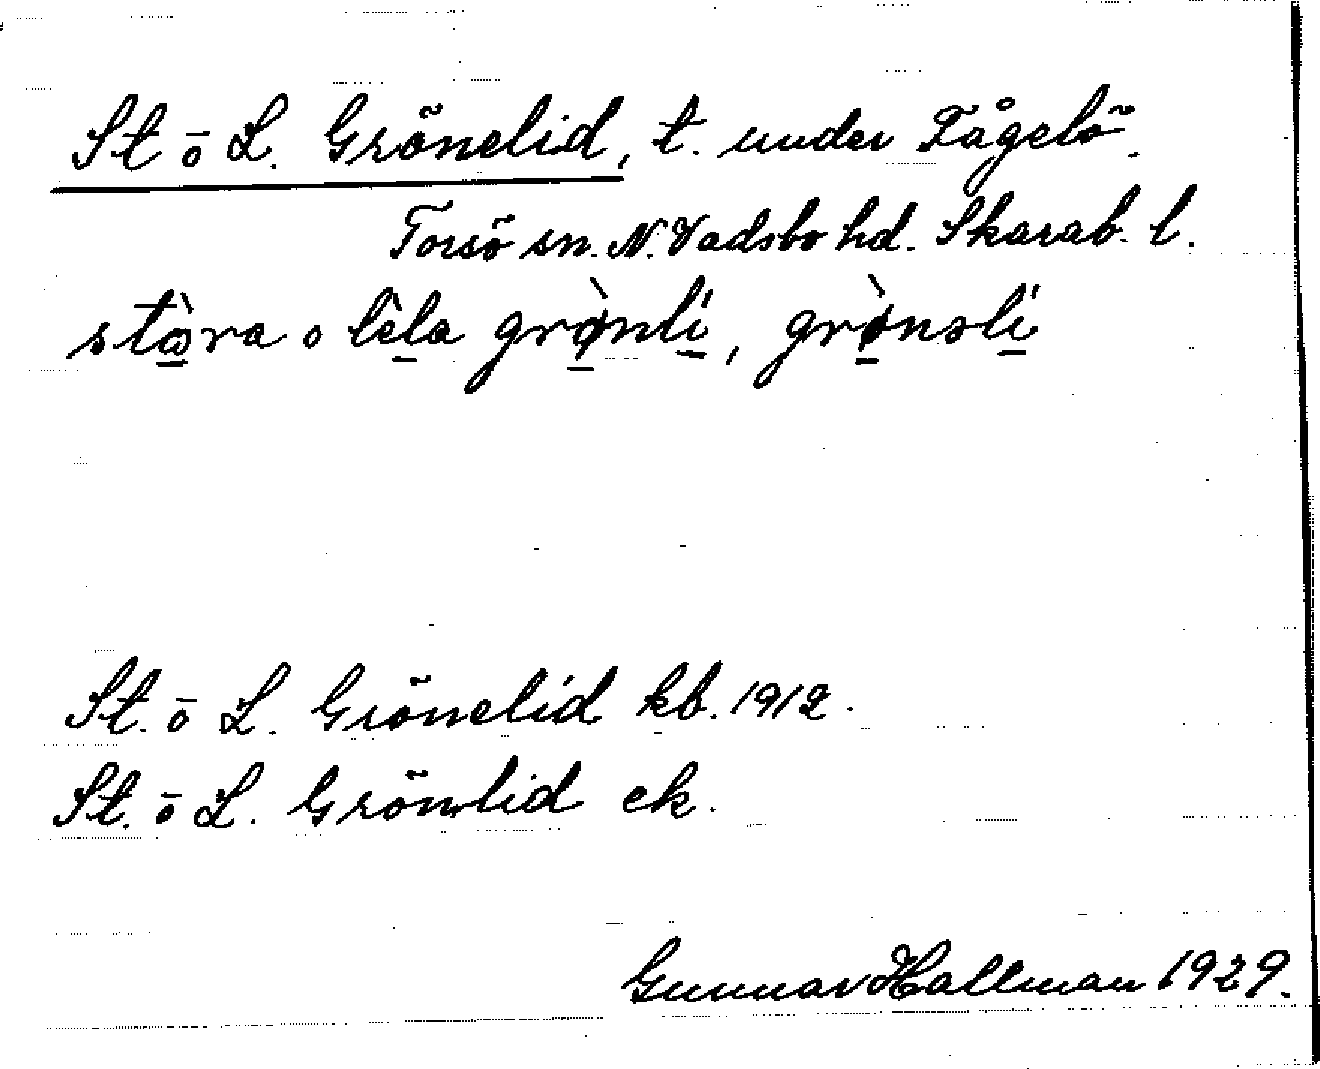 St ō L. Grönelid, t. under Fågelö.
Torsö sn. N. Vadsbo hd. Skarab. l.
stɷ̀ra o lèla grø̀nli, grø̀nəli
St. ō L. Grönelid kb. 1912.
St. ō L. Grönlid ek.
Gunnar Hallman 1929.